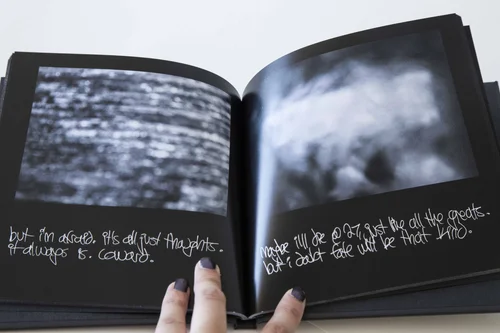 but i'm afraid. it's all just thoughts.
it always is. coward.
maybe i'll die @ 27, just like all the greats.
but i doubt fate will be that kind.